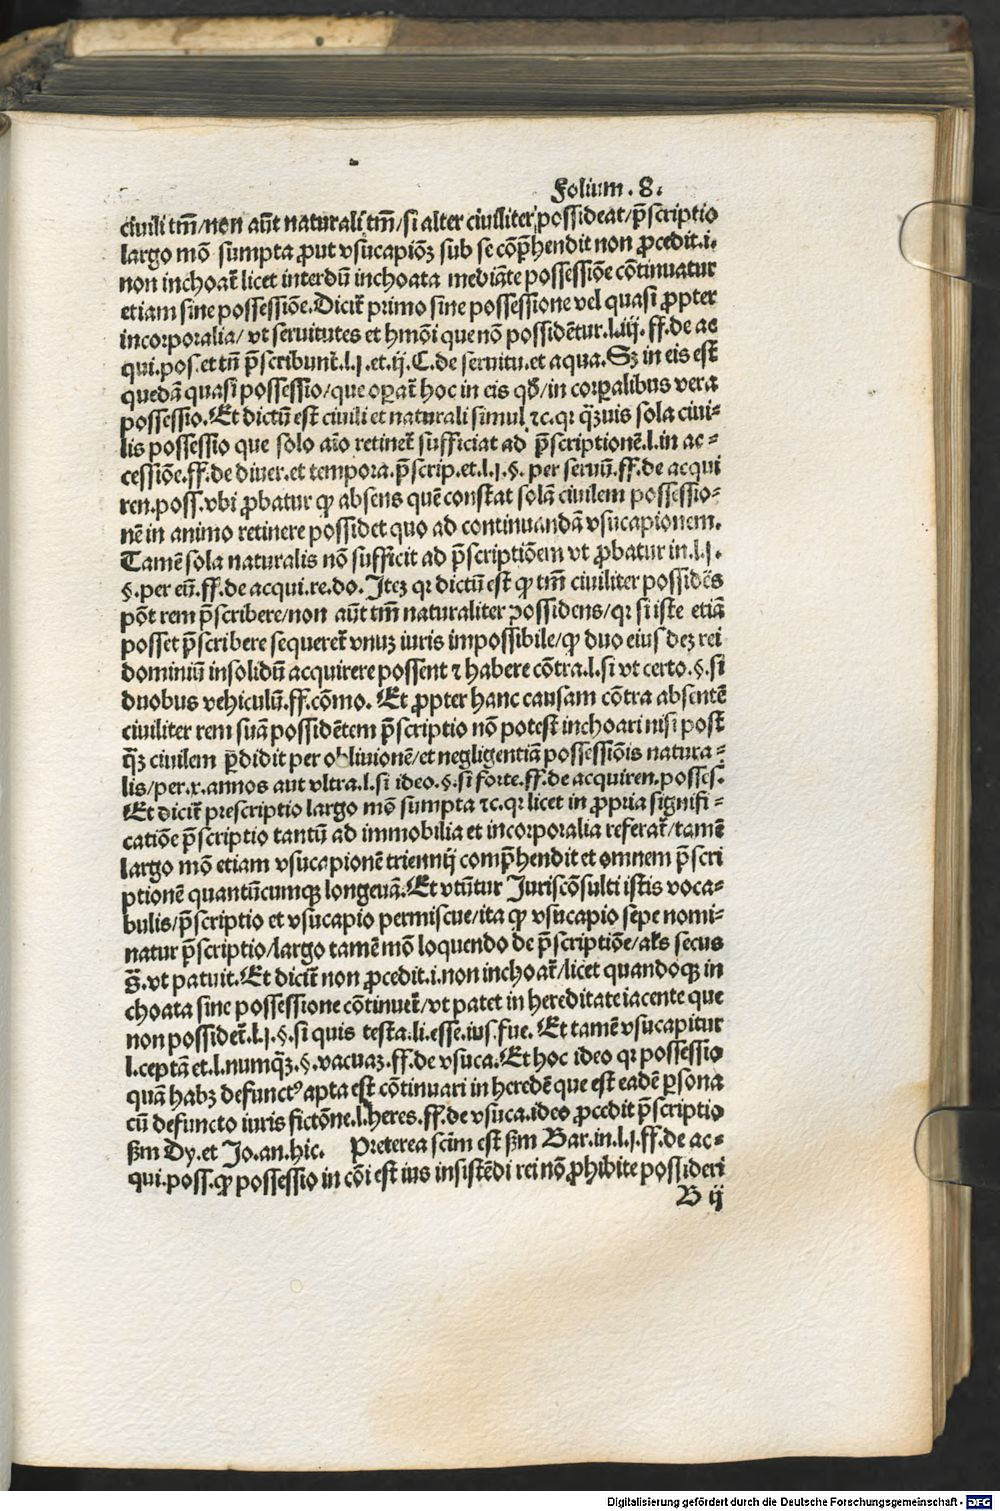 Folium . 8 .
ciuili tm̄/non aūt naturali tm̄/si alter ciuiliter possideat/p̄scriptio
largo mō sumpta ꝓut vsucapiōꝫ sub se cōp̄hendit non ꝓcedit.i.
non inchoat̄ licet interdū inchoata mediāte possessiōe cōtinuatur
etiam sine possessiōe.Dicit̄ primo sine possessione vel quasi ꝓpter
incorporalia/ vt seruitutes et hmōi que nō possidētur.l.iij. ff.de ac
qui.pos.et tn̄ p̄scribunt̄.l.j.et.ij.C.de seruitu.et aqua.Sꝫ in eis est
quedā quasi possessio/que oꝑat̄ hoc in eis qđ/in corꝑalibus vera
possessio.Et dictū est ciuili et naturali simul ⁊c.qꝛ q̄ꝫuis sola ciui⸗
lis possessio que solo aīo retinet̄ sufficiat ad p̄scriptionē.l.in ac⸗
cessiōe.ff.de diuer.et tempora.p̄scrip.et.l.j.§. per seruū.ff.de acqui
ren.poss.vbi ꝓbatur ꝙ absens quē constat solā ciuilem possessio⸗
nē in animo retinere possidet quo ad continuandā vsucapionem.
Tamē sola naturalis nō sufficit ad p̄scriptiōem vt ꝓbatur in.l.j.
§.per eū.ff.de acqui.re.do.Iteꝫ qꝛ dictū est ꝙ tm̄ ciuiliter possidēs
pōt rem p̄scribere/non aūt tm̄ naturaliter possidens/qꝛ si iste etiā
posset p̄scribere sequeret̄ vnuꝫ iuris impossibile/ꝙ duo eiusdeꝫ rei
dominiū insolidū acquirere possent ⁊ habere cōtra.l.si vt certo.§.si
duobus vehiculū.ff.cōmo. Et ꝓpter hanc causam cōtra absentē
ciuiliter rem suā possidētem p̄scriptio nō potest inchoari nisi post
q̄ꝫ ciuilem p̄didit per obliuionē/et negligentiā possessiōis natura⸗
lis/per.x.annos aut vltra.l.si ideo.§.si forte.ff.de acquiren.posses.
Et dicit̄ prescriptio largo mō sumpta ⁊c.qꝛ licet in ꝓpria signifi⸗
catiōe p̄scriptio tantū ad immobilia et incorporalia referat̄/tamē
largo mō etiam vsucapionē triennij comp̄hendit et omnem p̄scri
ptionē quantūcumqꝫ longeuā.Et vtūtur Juriscōsulti istis voca⸗
bulis/p̄scriptio et vsucapio permiscue/ita ꝙ vsucapio sepe nomi⸗
natur p̄scriptio/largo tamē mō loquendo de p̄scriptiōe/als secus
s̄. vt patuit.Et dicit̄ non ꝓcedit.i.non inchoat̄/licet quandoqꝫ in
choata sine possessione cōtinuet̄/vt patet in hereditate iacente que
non possidet̄.l.j.§.si quis testa.li.esse.ius.fue. Et tamē vsucapitur
l.ceptā et.l.numq̄ꝫ.§.vacuaꝫ.ff.de vsuca.Et hoc ideo qꝛ possessio
quā habꝫ defunctꝰ apta est cōtinuari in heredē que est eadē ꝑsona
cū defuncto iuris fictōne.l.heres.ff.de vsuca.ideo ꝓcedit p̄scriptio
ẜm Dy.et Jo.an.hic. Preterea scim est ẜm Bar.in.l.j.ff.de ac⸗
qui.poss.ꝙ possessio in cōi est ius insistēdi rei nō ꝓhibite possideri
B ij
Digitalisierung gefördert durch die Deutsche Forschungsgemeinschaft - DFG